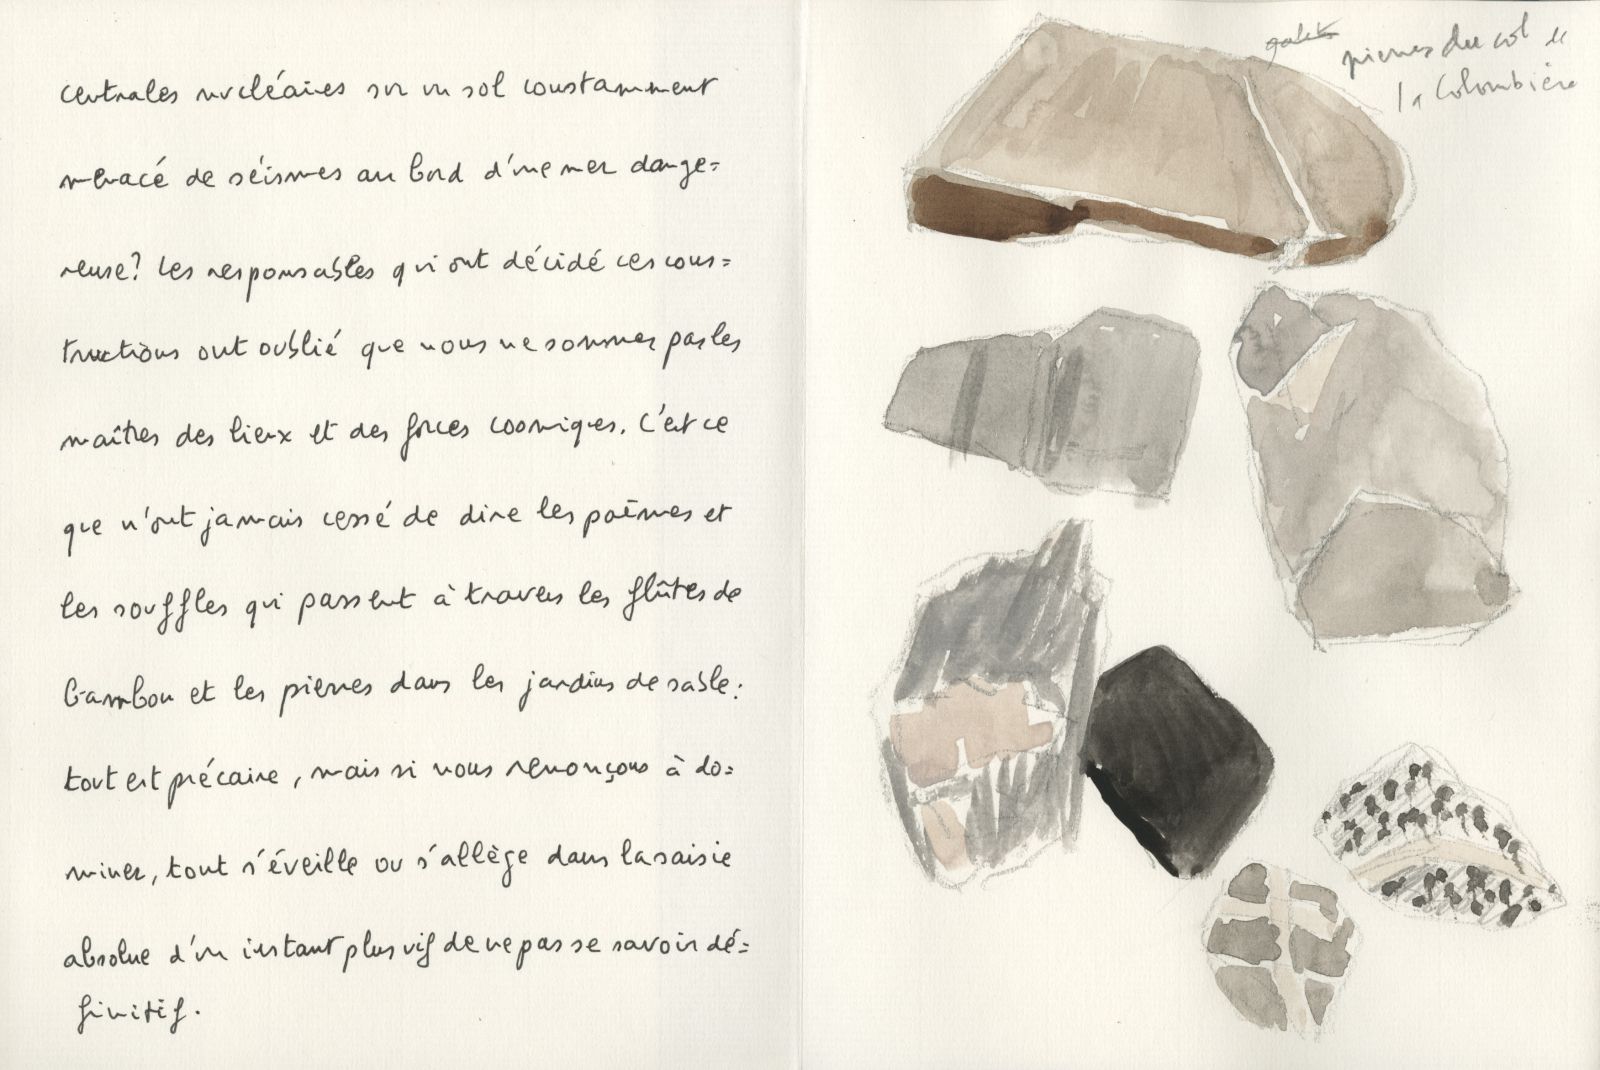 centrales nucléaires sur un sol constamment
menacé de séismes au bord d'une mer dange=
reuse? Les responsables qui ont décidé ces cons=
tructions ont oublié que nous ne sommes pas les
maîtres des lieux et des forces cosmiques. C'est ce
que n'ont jamais cessé de dire les poèmes et
les souffles qui passent à travers les flûtes de
bambou et les pierres dans les jardins de sable:
tout est précaire, mais si nous renonçons à do=
miner, tout s'éveille ou s'allège dans la saisie
absolue d'un instant plus vif de ne pas se savoir dé=
finitif.
galets pierres du col de
la Colombière